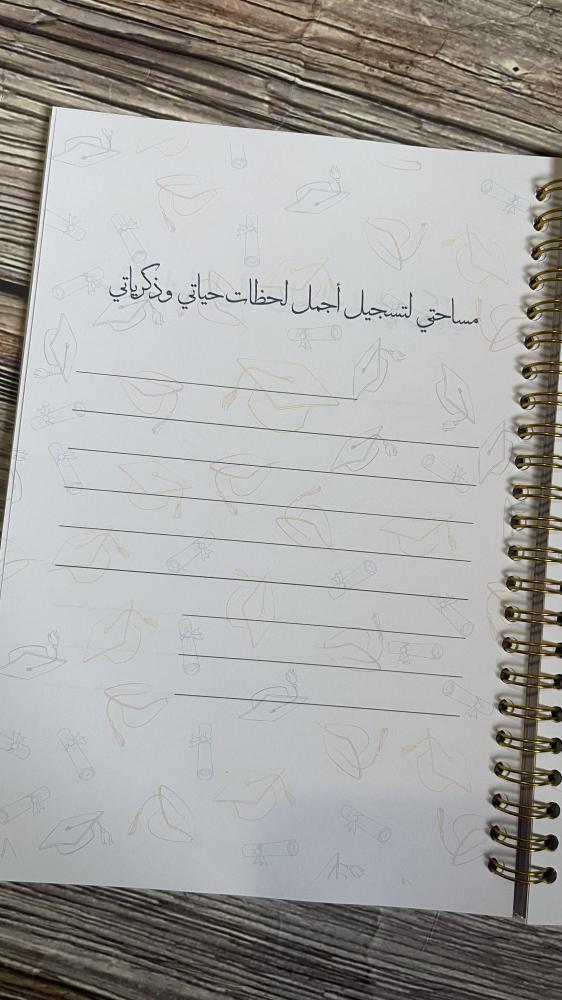 مساحتي لتسجيل أجمل لحظات حياتي وذكرياتي